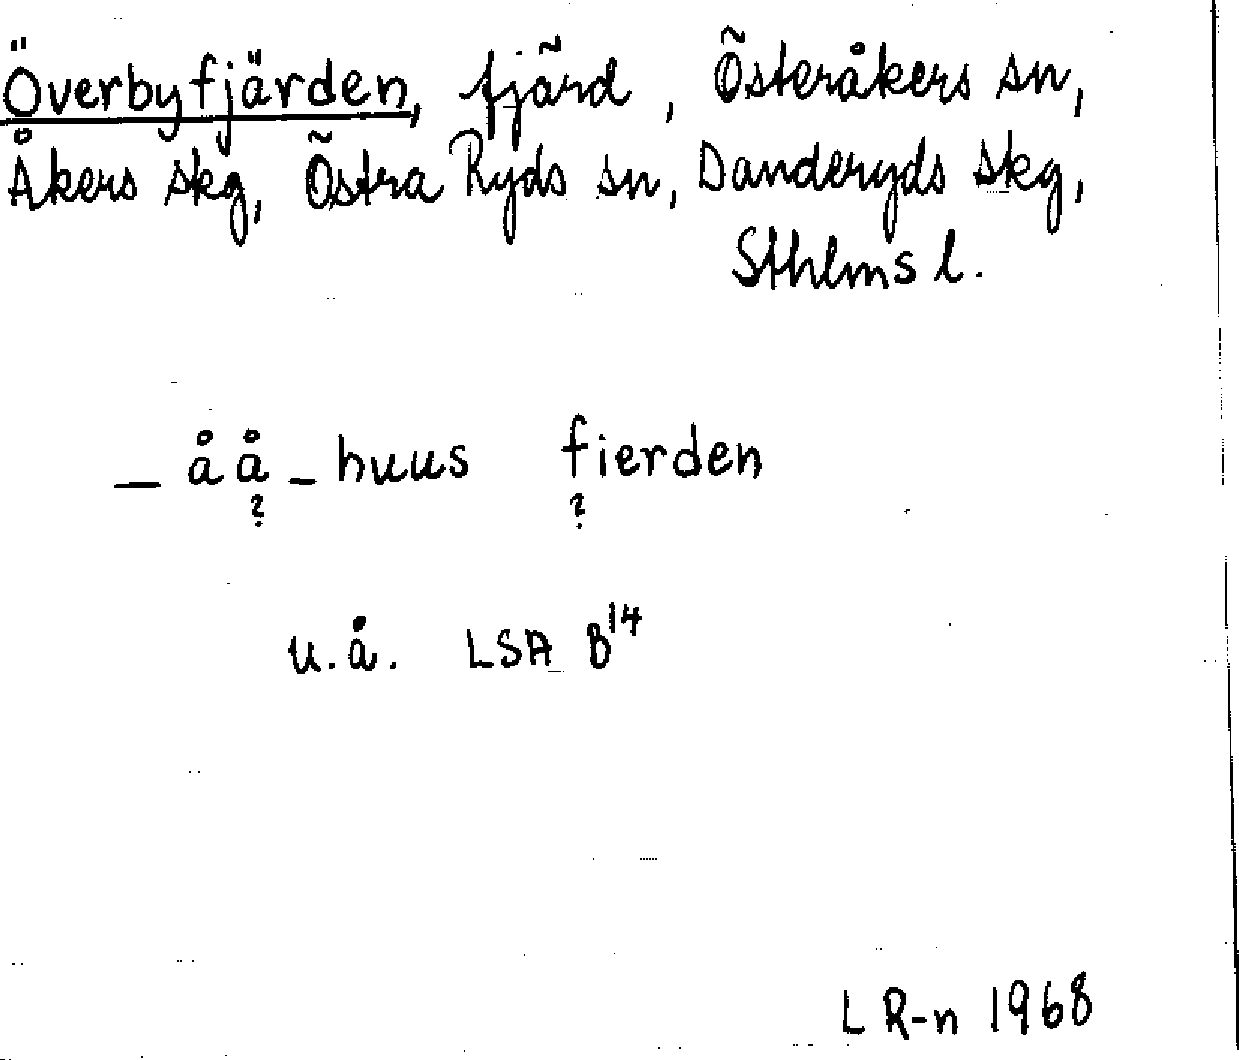 Överbyfjärden, fjärd, Österåkers sn,
Åkers skg, Östra Ryds sn, Danderyds skg,
Sthlms l.
_ å å _ huus fierden
? ?
u.å. LSA B14
L R-n 1968